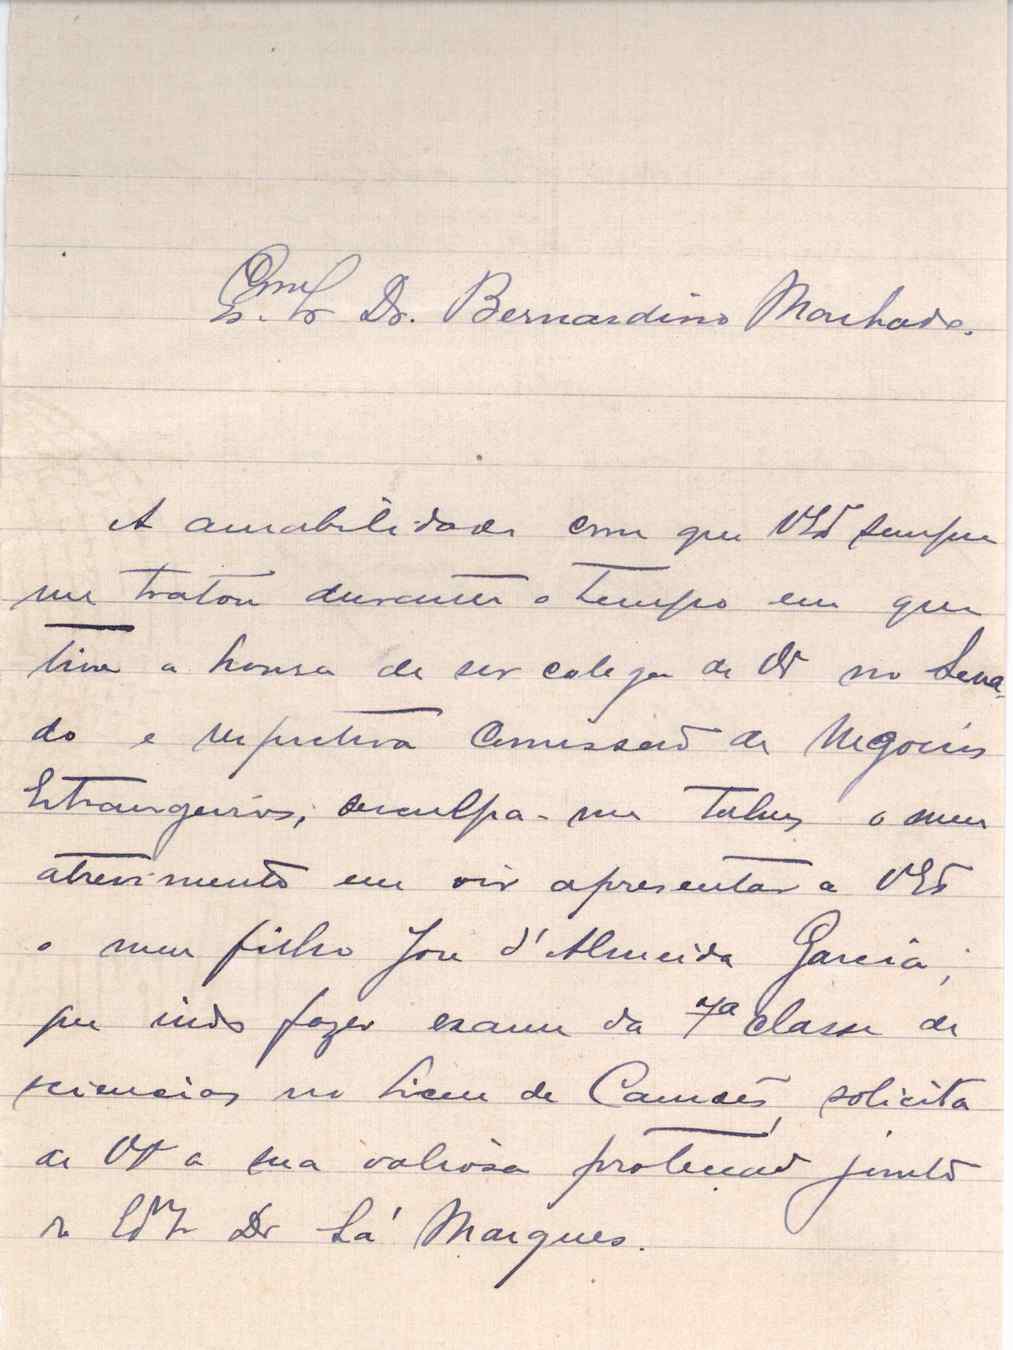 Exmo Sr. Dr. Bernardino Machado.
A amabilidade com que VExª sempre
me tratou durante o tempo em que
tive a honra de ser colega de Vª no Sena-
do e respectiva Comissão de Negocios
Estrangeiros, desculpa-me talvez o meu
atrevimento em vir apresentar a VExª
o meu filho José d'Almeida Garcia,
que indo fazer exame da 7ª classe de
sciencias no Liceu de Camões, solicita
de Vª a sua valiosa protecção junto
do Exmo Sr Dr Sá Marques.